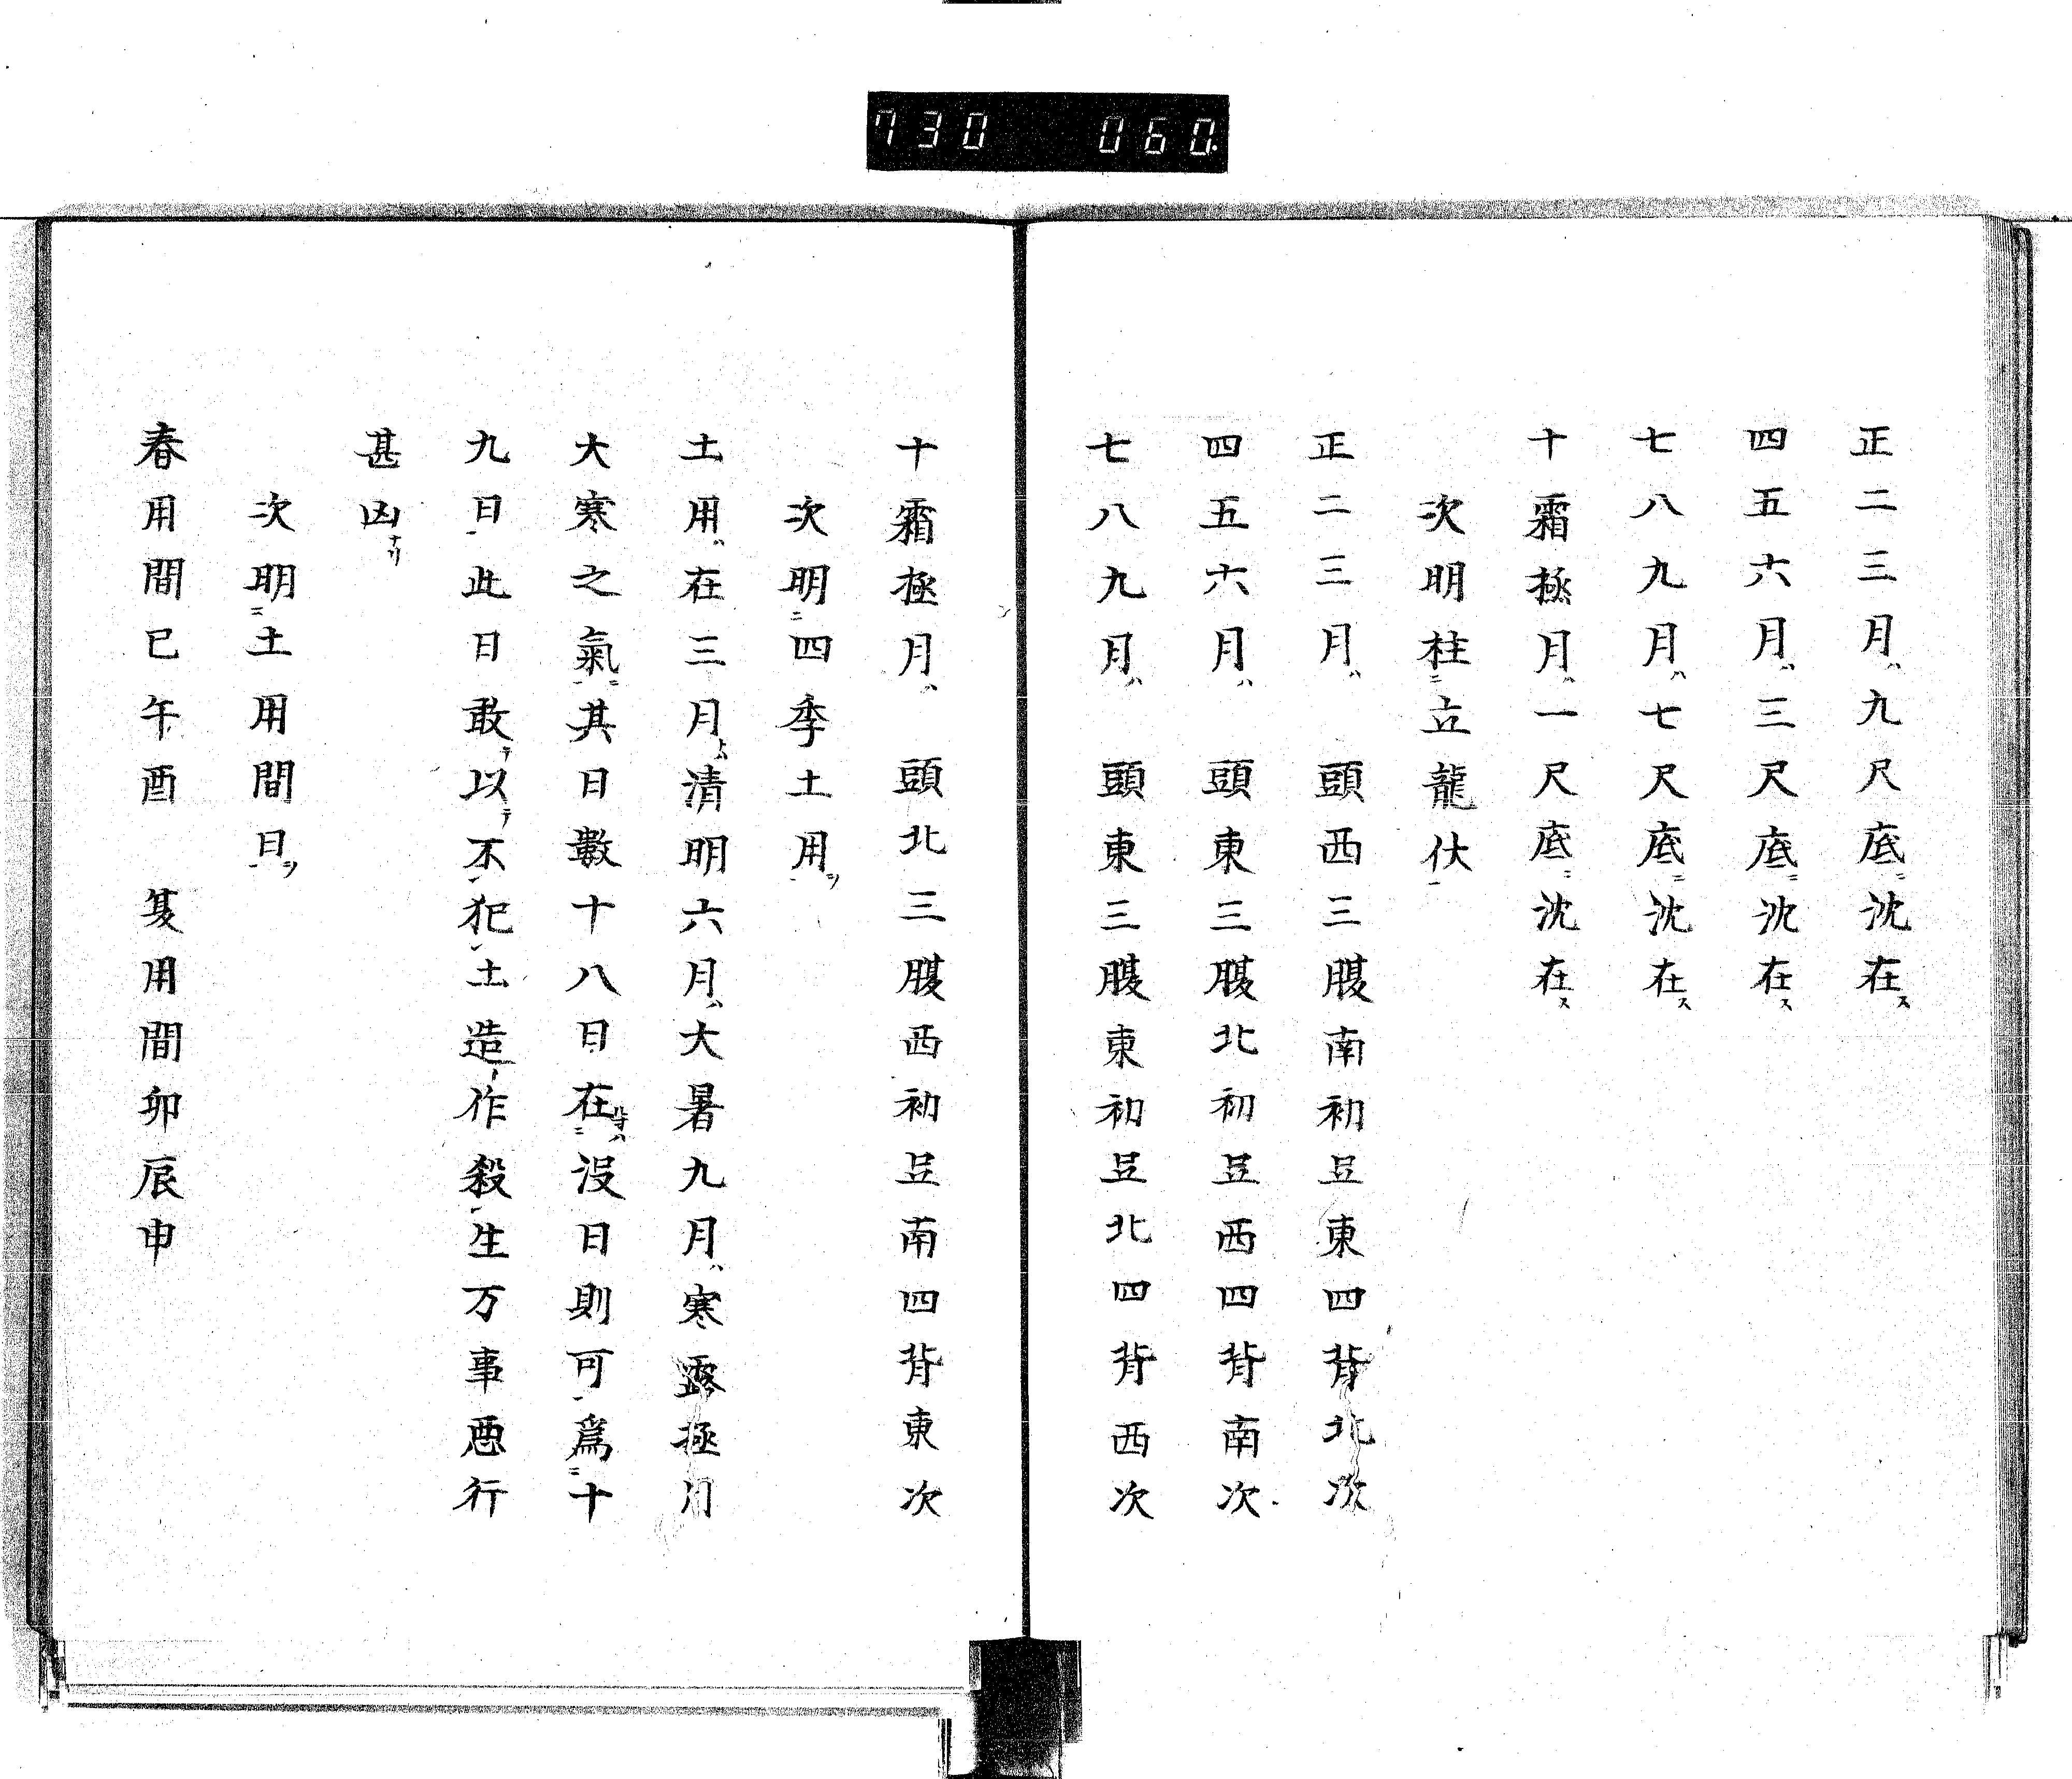 730 060.
正二三月ハ九尺底ニ沈在ス
四五六月ハ三尺底ニ沈在ス
七八九月ハ七尺底ニ沈在ス
十霜極月ハ一尺底ニ沈在ス
次明柱ニ立龍伏一
正二三月ハ 頭西三腹南初足東四背北次
四五六月ハ 頭東三腹北初足西四背南次
七八九月ハ 頭東三腹東初足北四背西次
十霜極月ハ 頭北三腹西初足南四背東次
次明ニ四季土用一ヲ
土用ハ在三月ハ清明六月ハ大暑九月ハ寒露極月
大寒之氣ニ其日數十八日在ニ没日則可一爲ニ十
九日一此日敢テ以テ不犯土造作殺生万事悪行
甚凶ナリ
次明ニ土用間日一ヲ
春用間巳午酉 夏用間卯辰申